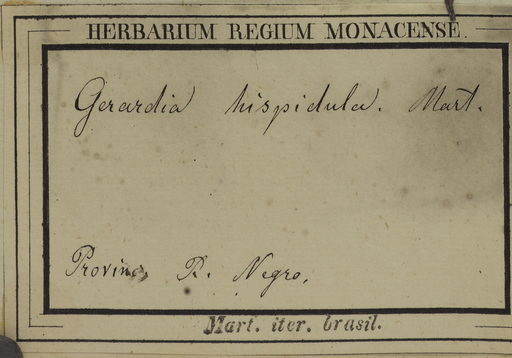 HERBARIUM REGIUM MONACENSE.
Gerardia hispidula. Mart.
Provinc. R. Negro.
Mart. iter. brasil.